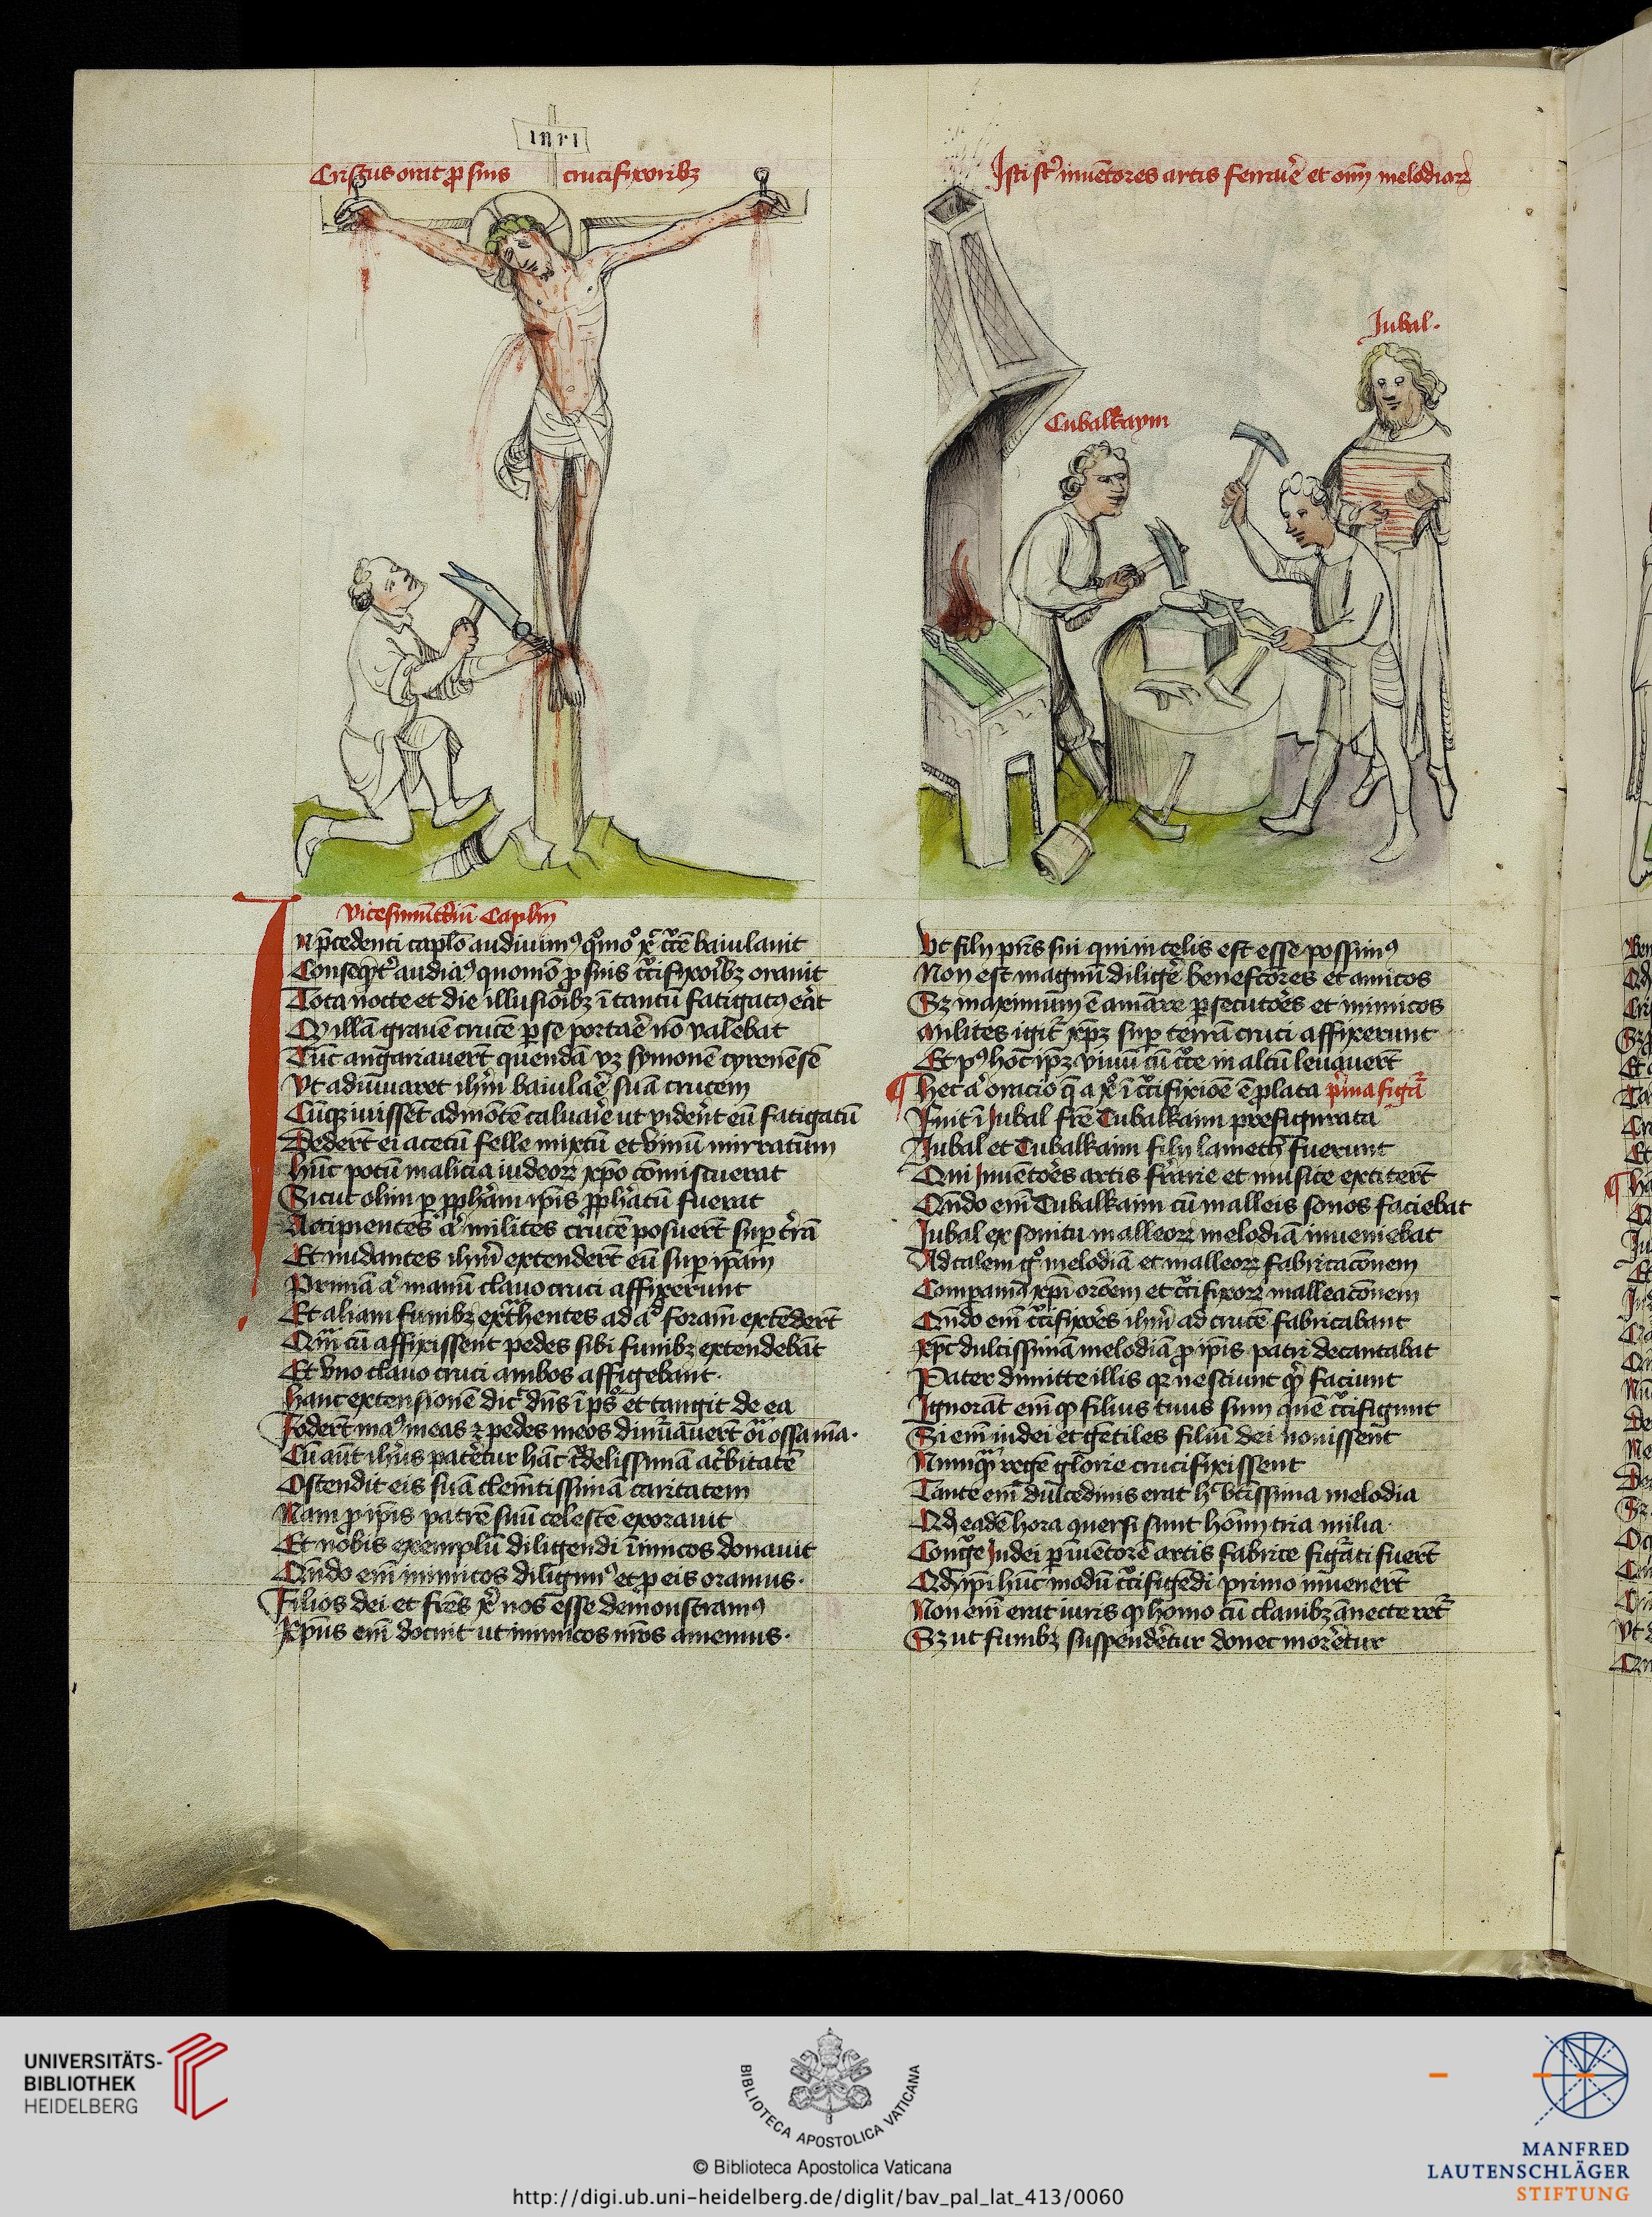 inri
Cristus orat p̄ suis crucifixoribz
vicesimūtciū Caplm̄
In p̄cedenti caplo audiuimꝰ qͦmoͦ xp̄c cͨcē baiulauit
Conseqn̄t' audiaꝰ quomo p̄ suis cͨcifixorībz orauit
Tota nocte et die illusioībz ī tantū fatigatꝰ erat
Qꝫ illā grauē crucē p̱ se portaē nō valebat
Tūc angariauer̄t quendā vꝫ symonē cyrenēsē
Vt adiūuaret ihm̄ baiulaē suā crucem
Cūqꝫ iuisset ad mōtē caluaīe ut viderēt eū fatigatū
Dedert̄ ei acetū felle mixtū et vinū mirratum
Hūc potū malicia iudeoꝝ xpo cōmiscuerat
Sicut olim p̱ ꝓph'iam ip̄is ꝓph'atū fuerat
Accipientes a' milites crucē posuert̄ sup̱ trā
Et nudantes ihm̄ extendert̄ eū sup̱ ip̄am
Primā a' manū clauo cruci affixerunt
Et aliam funibꝫ extͣhentes ad ad' foram extēdert̄
Qm̄ cū affixissent pedes sibi funibꝫ extendebāt
Et vno clauo cruci ambos affigebant·
Hanc extensionē dic̄t dn̄s ī psͦ et tangit de ea
Fodert̄ maꝰ meas ⁊ pedes meos dinūauert̄ oīa ossa m̄a·
Cū aūt ihus patetur hāc cͬdelissimā acͬbitatē
Ostendit eis suā clemētissimā caritatem
Nam p̄ ip̄is patrē suū celestē exorauit
Et nobis exemplū diligendi īimicos donauit
Qn̄do em̄ inimicos diligimꝰ et p̄ eis oramus·
Filios dei et fr̄es xp̄i nos esse demonstramꝰ
Xpūs em̄ docuit ut inimicos nros amemus·
Isti sт̄ inuētores artis ferraīe et oīm melodiaꝝ
Iubal·
Tubalkaym
Vt filij pr̄is sui qui in celis est esse possimꝰ
Non est magnū diligē benefctores et amicos
Sꝫ maximum ē amare p̱secutores et inimicos
Milites igit' xpꝫ sup̱ terrā cruci affixerunt
Et pꝰ hoc ip̄ꝫ viuū cū cͨce in altū leuauert̄
Hec a' oracio q̄ a xpͦ ī cͨcifixioē ē p̄lata p̄ma figͣ
Fuit ī Iubal frē Tubalkaim prefigurata
Iubal et Tubalkaim filij lamech fuerunt
Qui Inuētores artis fr̄arie et musice extitert̄
Qn̄do em̄ Tubalkaim cū malleis sonos faciebat
Iubal ex sonitu malleoꝝ melodiā inueniebat
Ad talem gͦ melodiā et malleoꝝ fabricacōnem
Comparam̄ xpi orōem et cͨcifixoꝝ malleacōnem
Qn̄do em̄ cͨcifixores ihm̄ ad crucē fabricabant
Xpc dulcissimā melodiā p̄ ip̄is patri decantabat
Pater dimitte illis qꝛ nesciunt qͥd faciunt
Ignorāt em̄ qꝫ filius tuus sum quē cͨcifigunt
Si em̄ iudei et gētiles filiū dei nouissent
Nūnqͣm regē glorie crucifixissent
Tante em̄ dulcedinis erat h' bt̄issima melodia
Qd' eadē hora quersi sunt hoīm tria milia·
Congͦe Iudei p̱ inuētorē artis fabrice figͣti fuert̄
Qd' ip̄i hūc modū cͨcifigēdi primo inuenert̄
Non em̄ erat iuris qꝫ homo cū clauibꝫ ānecteret̄
Sꝫ ut funibꝫ suspendetur donec moretur
UNIVERSITÄTS-
BIBLIOTHEK
HEIDELBERG
BIBLIOTECA APOSTOLICA VATICANA
© Biblioteca Apostolica Vaticana
http://digi.ub.uni-heidelberg.de/diglit/bav_pal_lat_413/0060
MANFRED
LAUTENSCHLÄGER
STIFTUNG